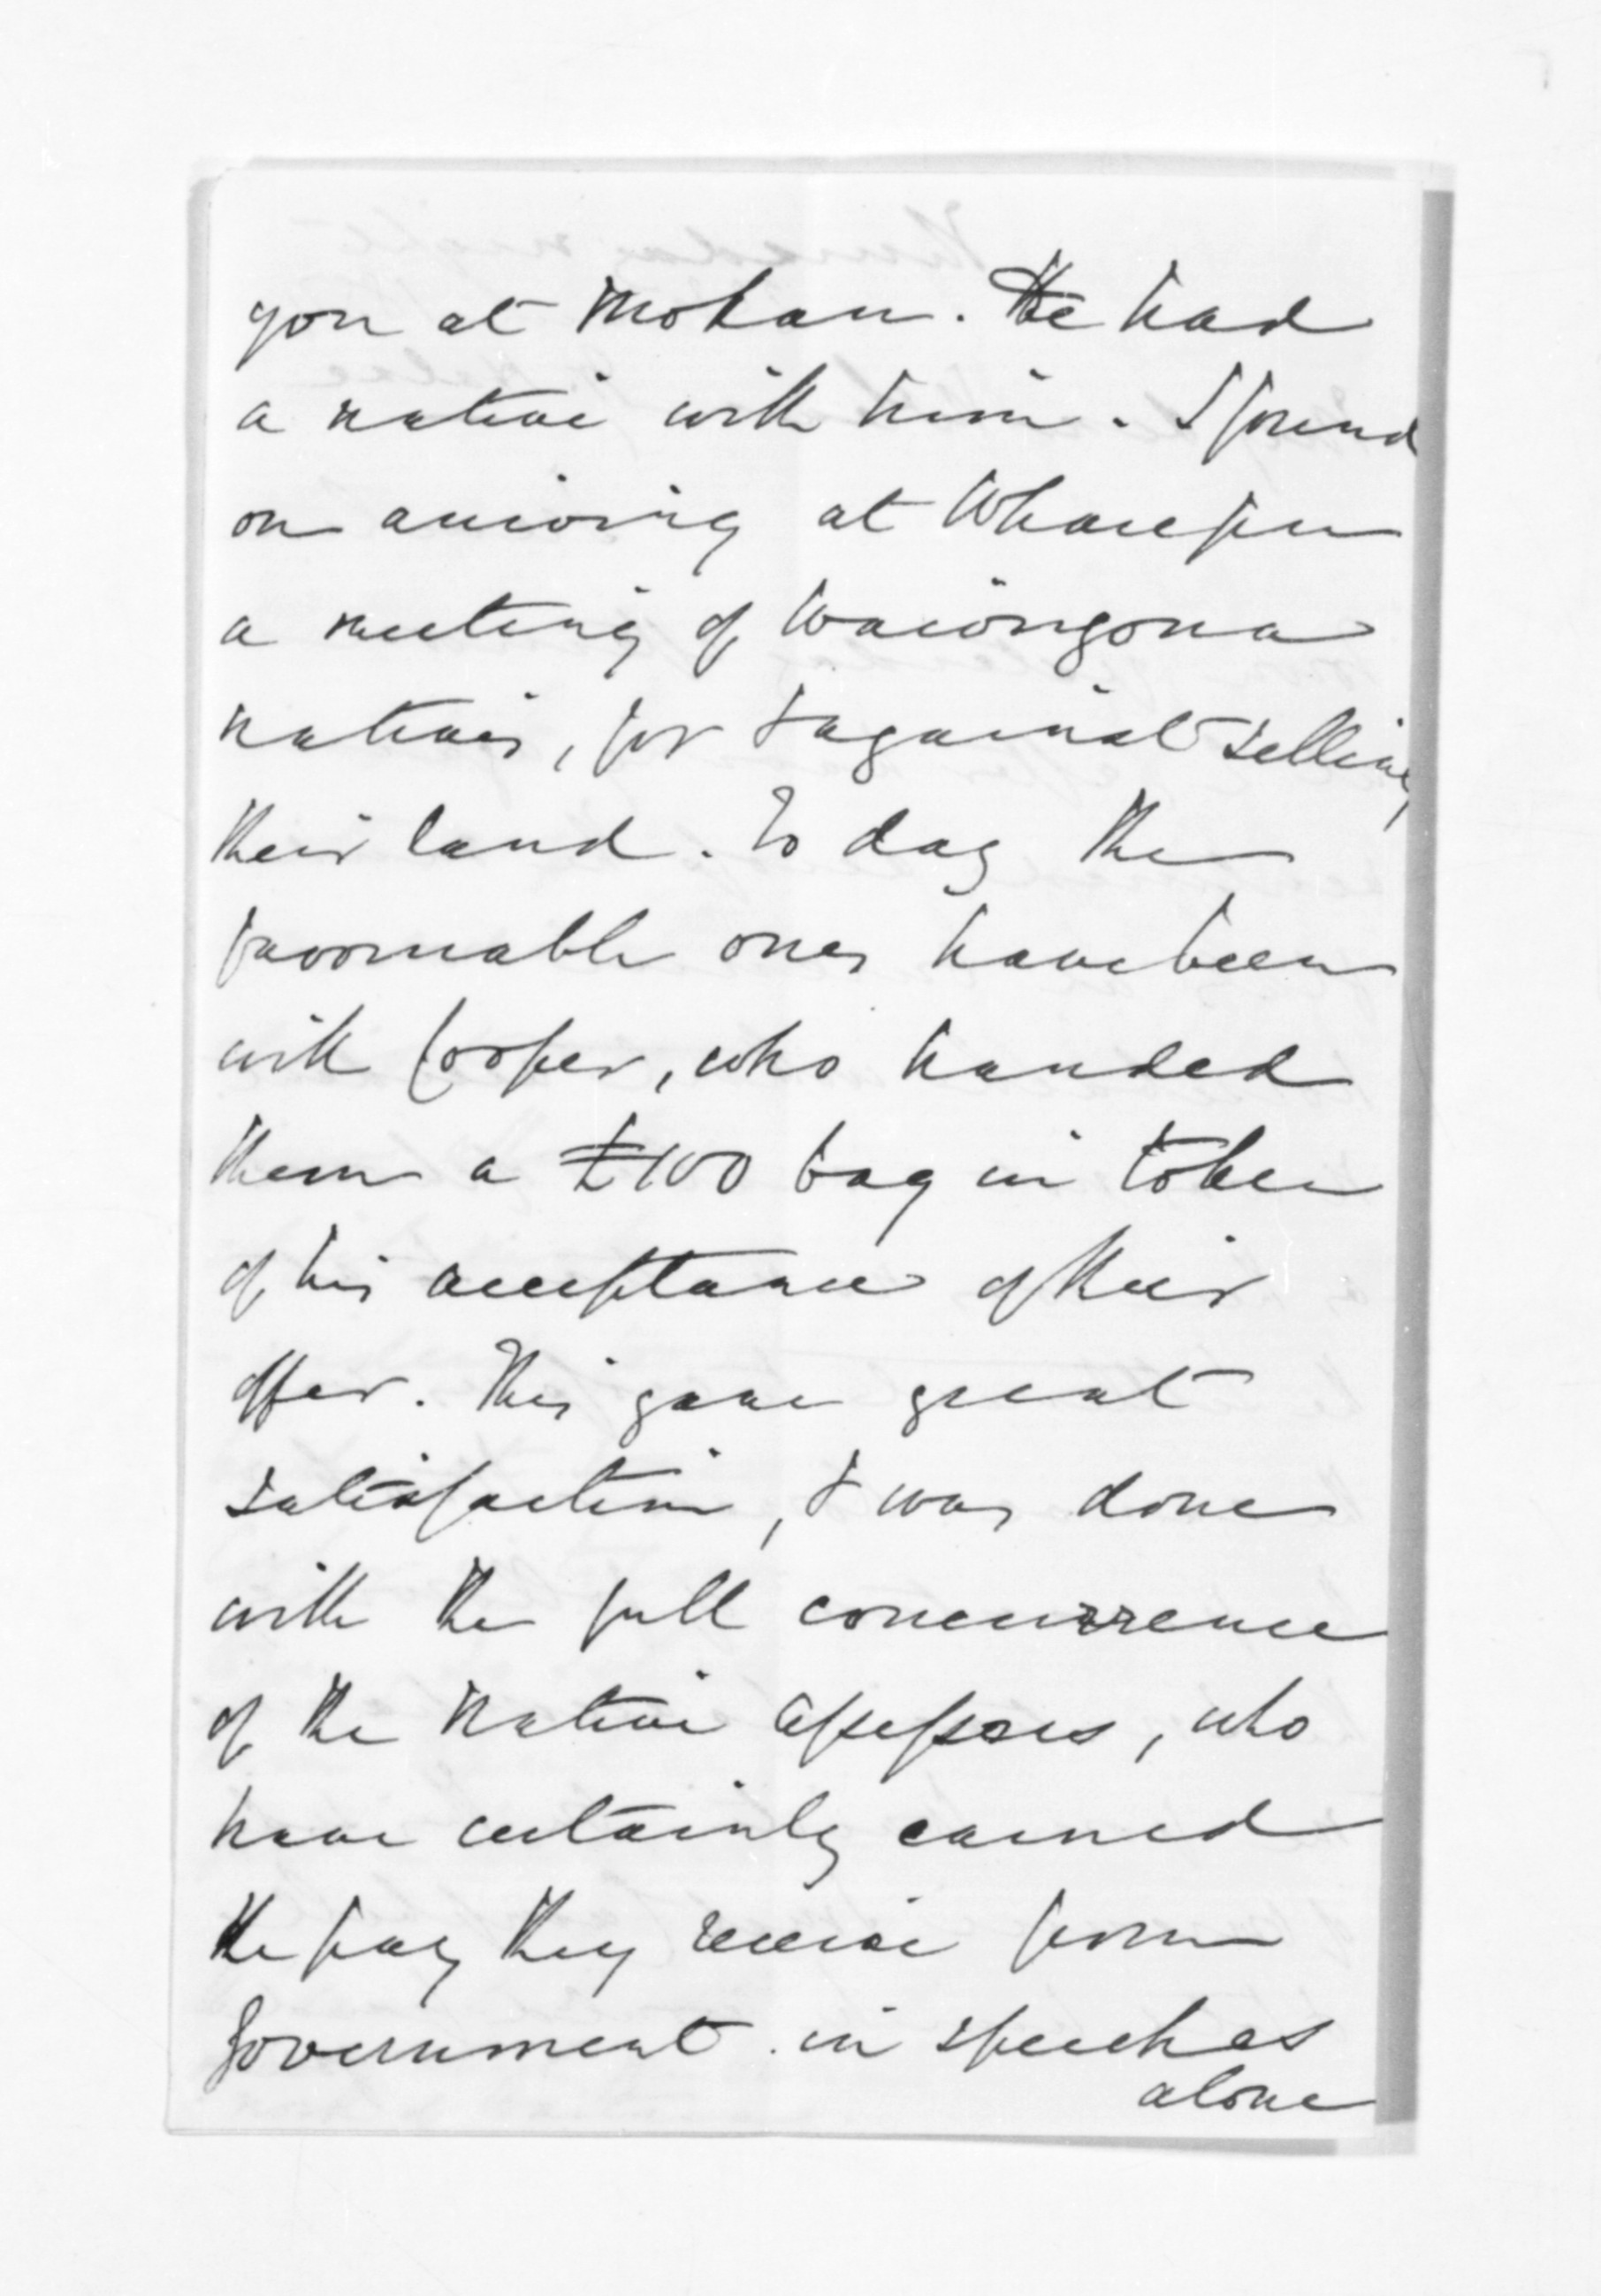 you at Mokau. He had
a native with him. I found
on arriving at Wharepu
a meeting of Waiongona
natives, for & against selling
their land. To day the
favourable ones have been
with Cooper, who handed
them a £100 bag in token
of his acceptance of their
offer. This gave great
satisfaction, & was done
with the full concurrence
of the Native Assessors, who
have certainly earned
the pay they receive from
Government in speeches
alone